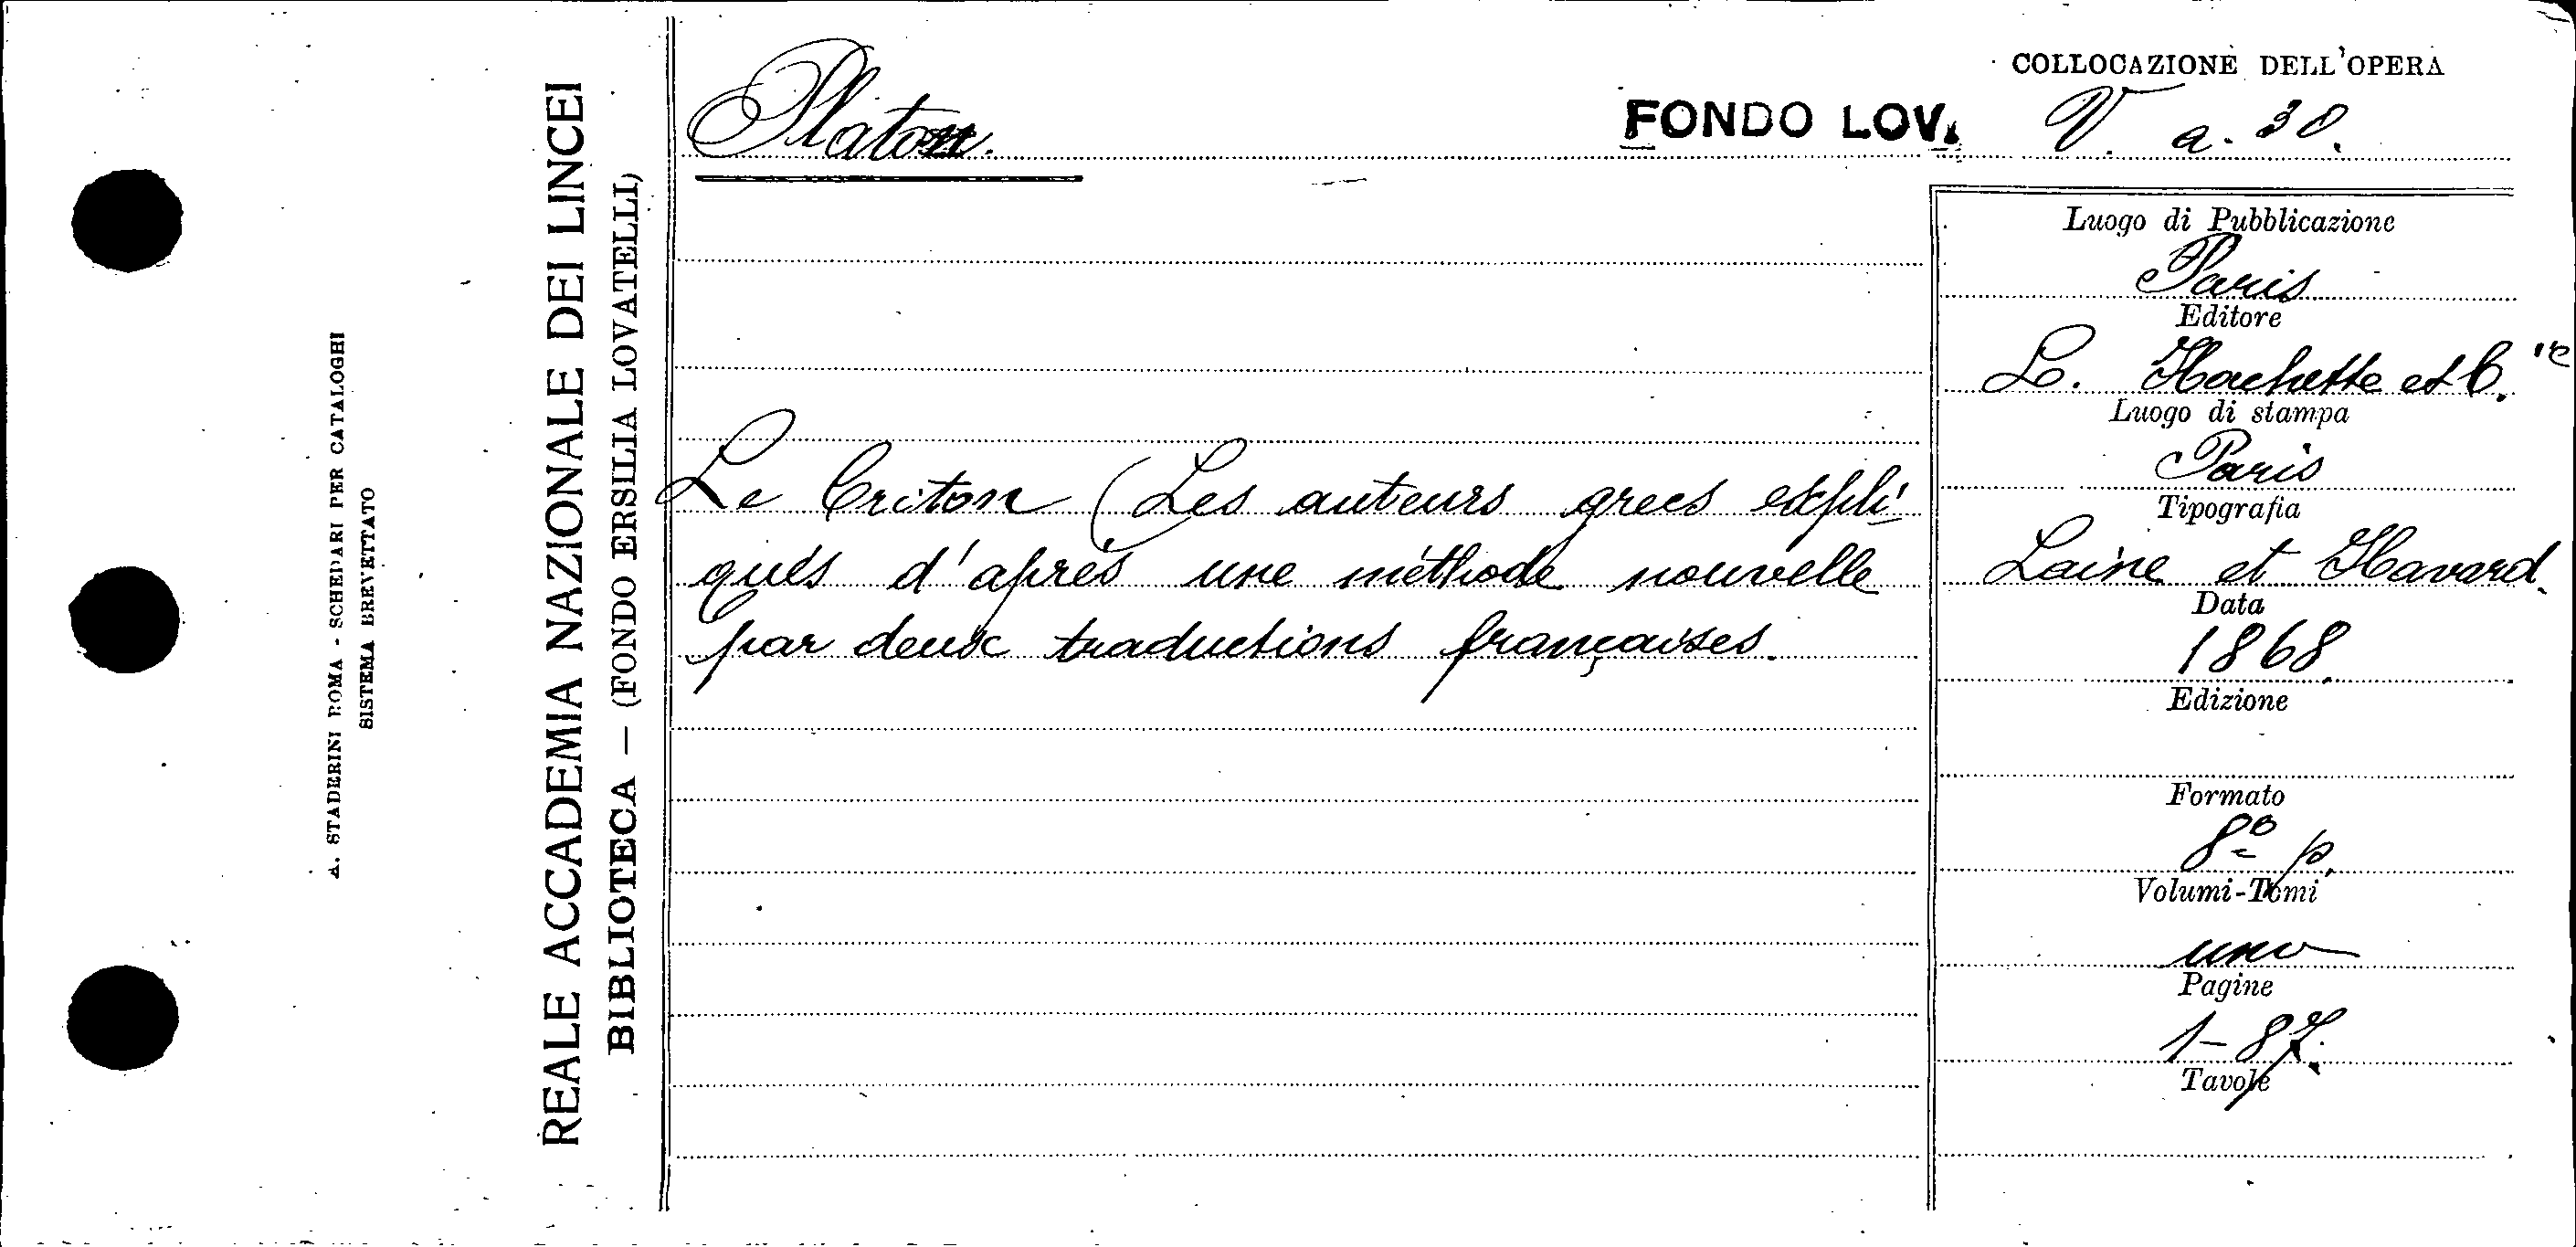 A. STADERINI ROMA - SCHEDARI PER CATALOGHI
SISTEMA BREVETTATO
REALE ACCADEMIA NAZIONALE DEI LINCEI
BIBLIOTECA — (FONDO ERSILIA LOVATELLI)
Platon.
FONDO LOV.
COLLOCAZIONE DELL'OPERA
V. a. 30.
Le Criton (Les auteurs grecs expli-
qués d'après une méthode nouvelle
par deux traductions françaises.
Luogo di Pubblicazione
Paris
Editore
L. Hachette et C.ie
Luogo di stampa
Paris
Tipografia
Laine et Havard.
Data
1868.
Edizione
Formato
8º p.
Volumi-Tomi
uno
Pagine
1-87.
Tavole